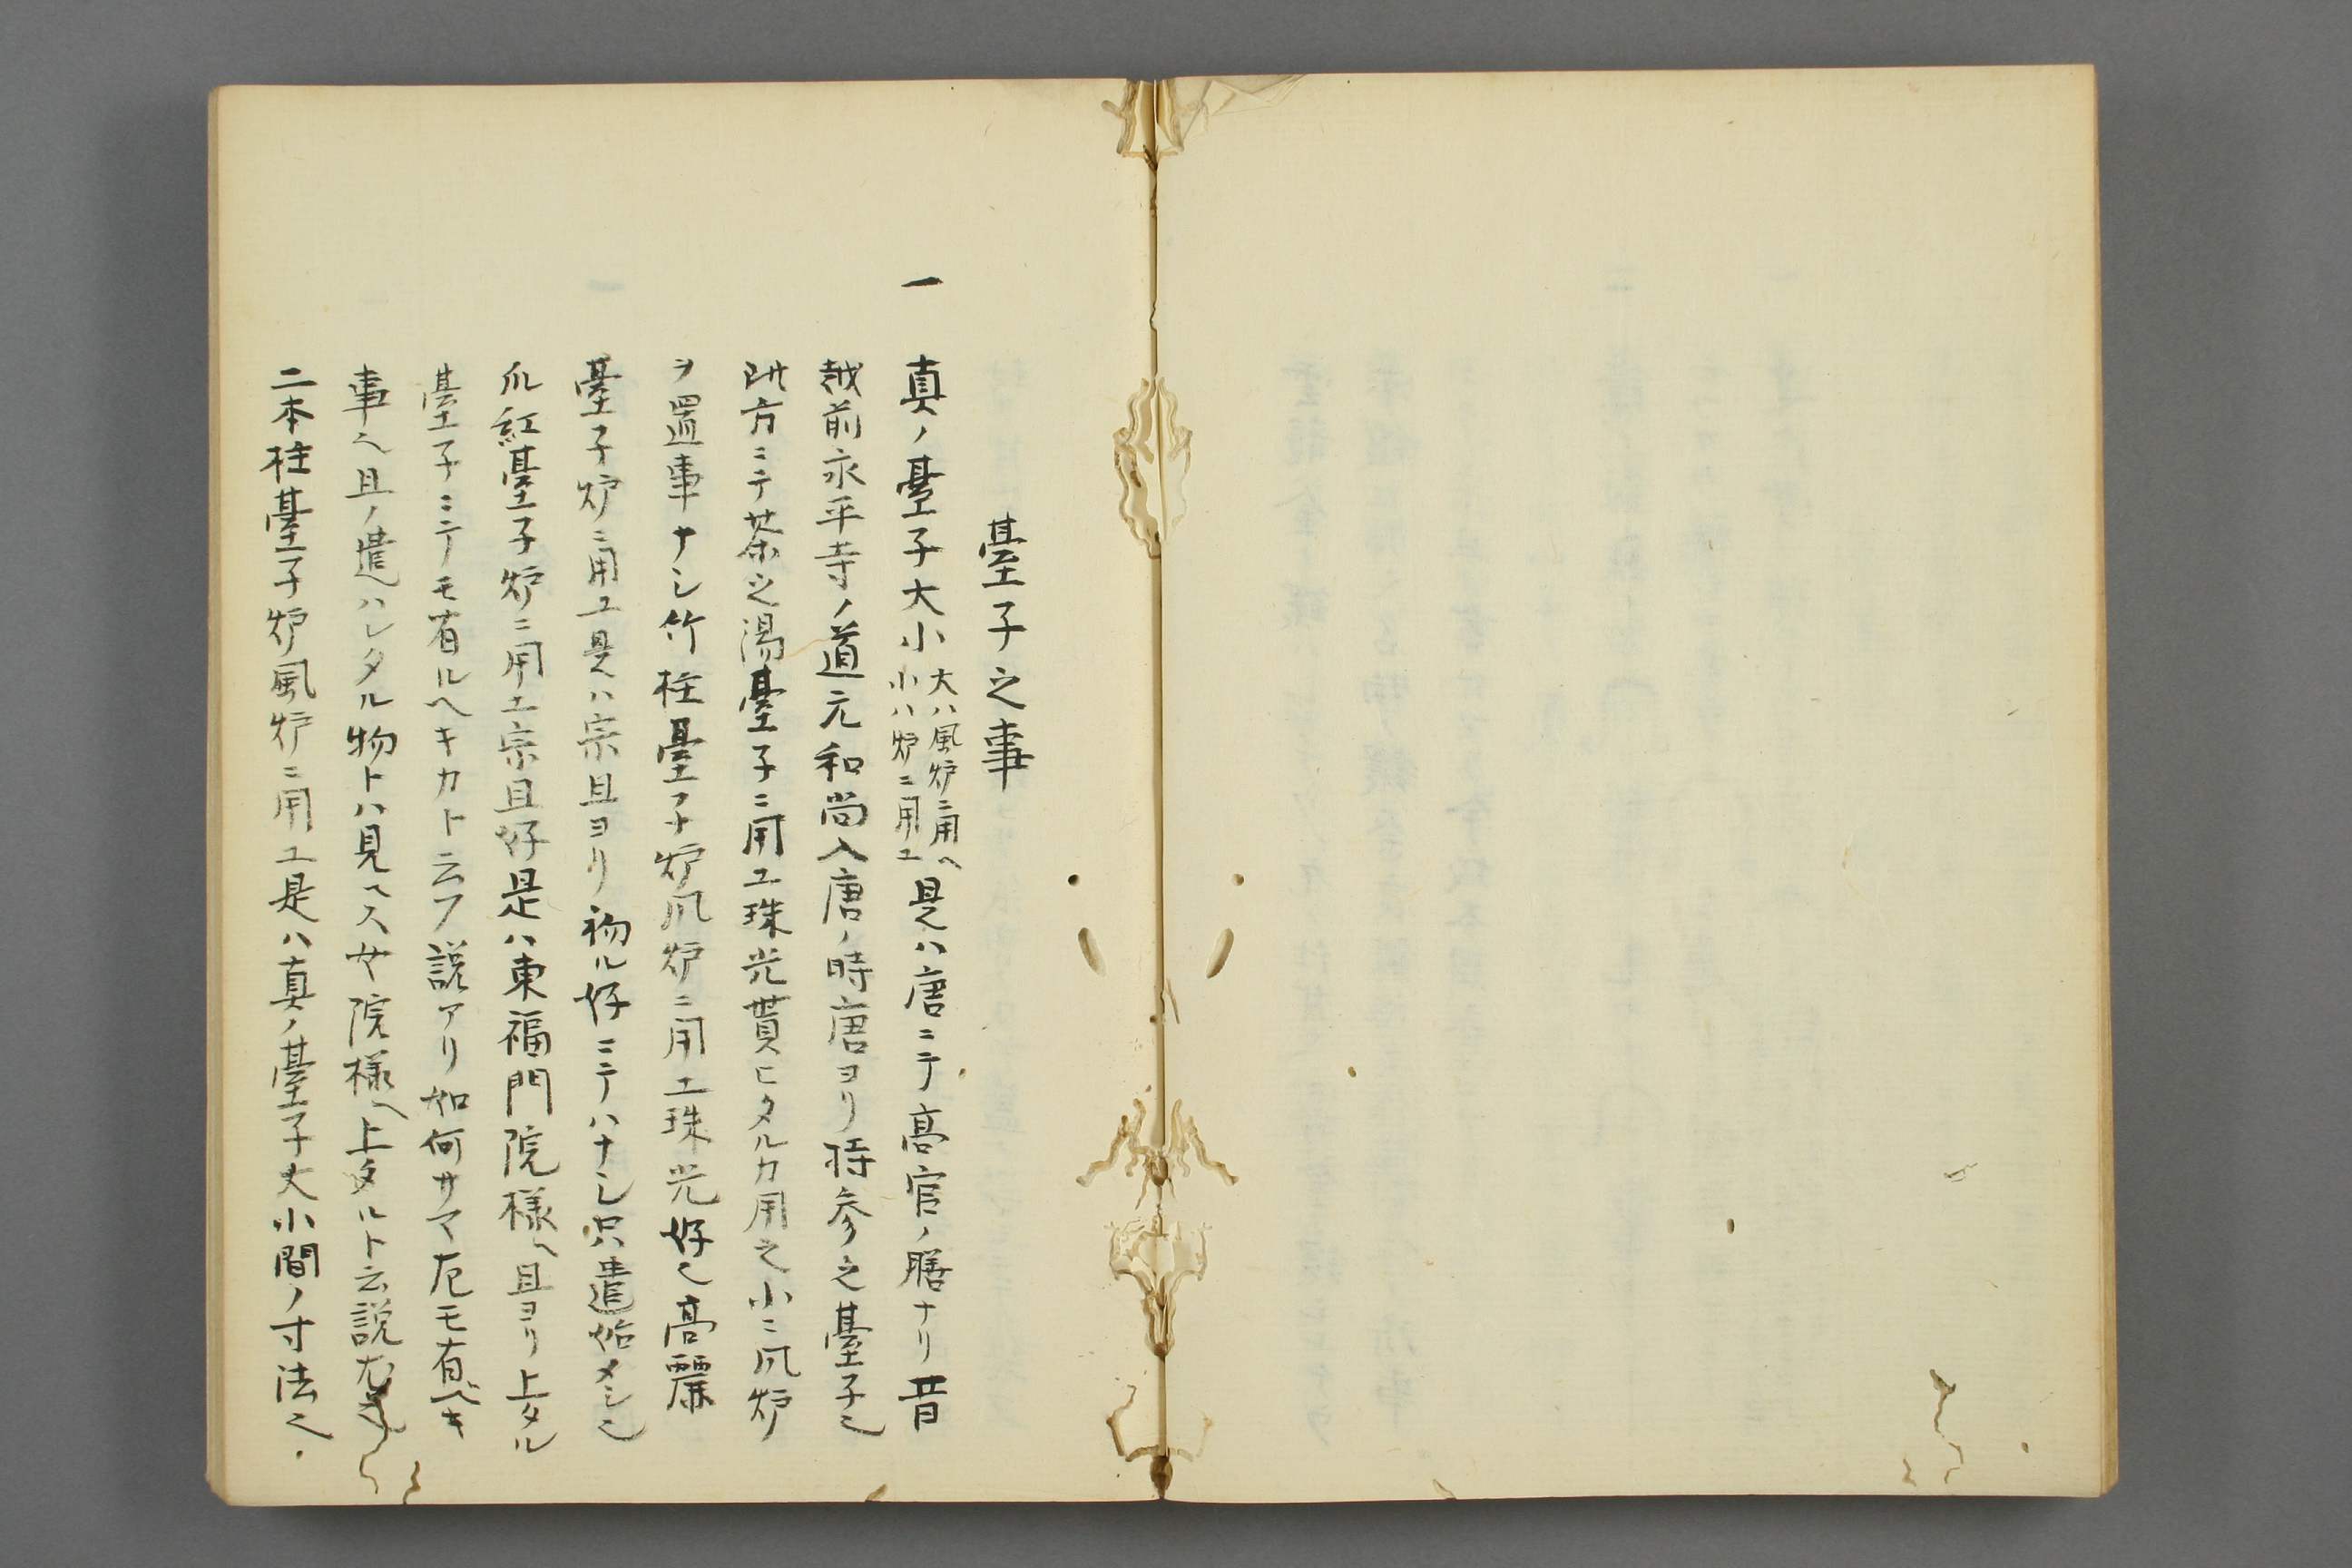 臺子之事
一 真ノ臺子大小 大ハ風炉ニ用ヘ 小ハ炉ニ用ユ 是ハ唐ニテ高官ノ膳ナリ昔
越前永平寺ノ道元和尚入唐ノ時唐ヨリ持参之臺子也
此方ニテ茶之湯臺子ニ用ユ珠光貰ヒタルカ用之小ニ风炉
ヲ置事ナシ竹柱臺子炉风炉ニ用ユ珠光好也高麗
臺子炉ニ用ユ是ハ宗旦ヨリ初ル好ニテハナシ只遣始メシ也
爪紅臺子炉ニ用ユ宗旦好是ハ東福門院様ヘ旦ヨリ上タル
臺子ニテモ有ルヘキカト云フ説アリ如何サマ左モ有ベキ
事也旦ノ遣ハレタル物トハ見ヘス女院様ヘ上タルト云説尤
二本柱臺子炉風炉ニ用ユ是ハ真ノ臺子大小間ノ寸法也